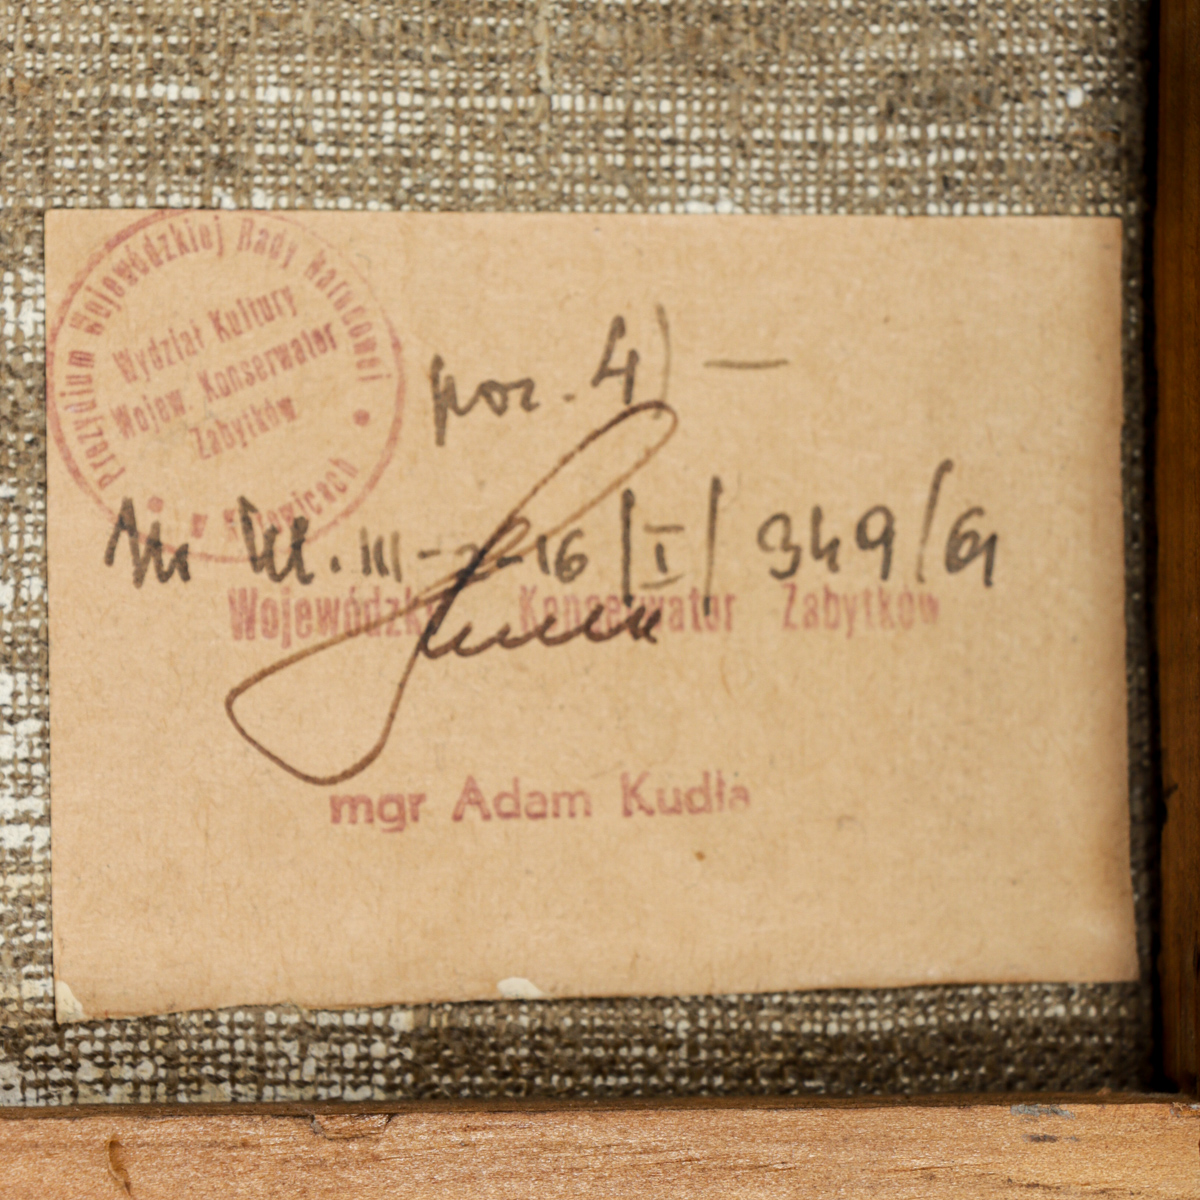 Prezydium Wojewódzkiej Rady Narodowej
Wydział Kultury
Wojew. Konserwator
Zabytków
w Katowicach
poz. 4) —
Nr Kl. III-2-16/I/349/61
Wojewódzki Konserwator Zabytków
mgr Adam Kudła